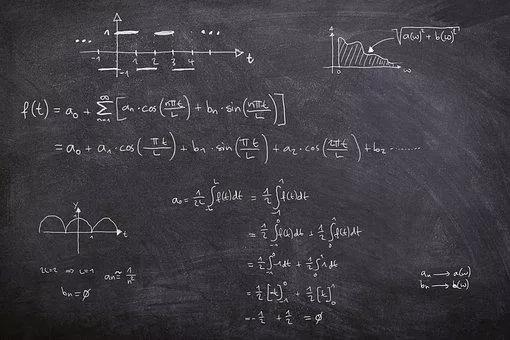 ... 1 ...
-1 1 2 3 4 t
-1
A
√(a(ω)² + b(ω)²)
0 ω
f(t) = a₀ + ∑ₙ₌₁^∞ [aₙ · cos(nπt/L) + bₙ · sin(nπt/L)]
= a₀ + a₁ · cos(πt/L) + b₁ · sin(πt/L) + a₂ · cos(2πt/L) + b₂ ........
a₀ = 1/2L ∫₋L^L f(t)dt = 1/2 ∫₋₁^1 f(t)dt
= 1/2 ∫₋₁^0 f(t)dt + 1/2 ∫₀^1 f(t)dt
= 1/2 ∫₋₁^0 -1dt + 1/2 ∫₀^1 1dt
= 1/2 [-t]₋₁^0 + 1/2 [t]₀^1
= -1/2 + 1/2 = ∅
y
1 t
=> L=1 aₙ ≈ 1/n²
bₙ = ∅
aₙ → a(ω)
bₙ → b(ω)